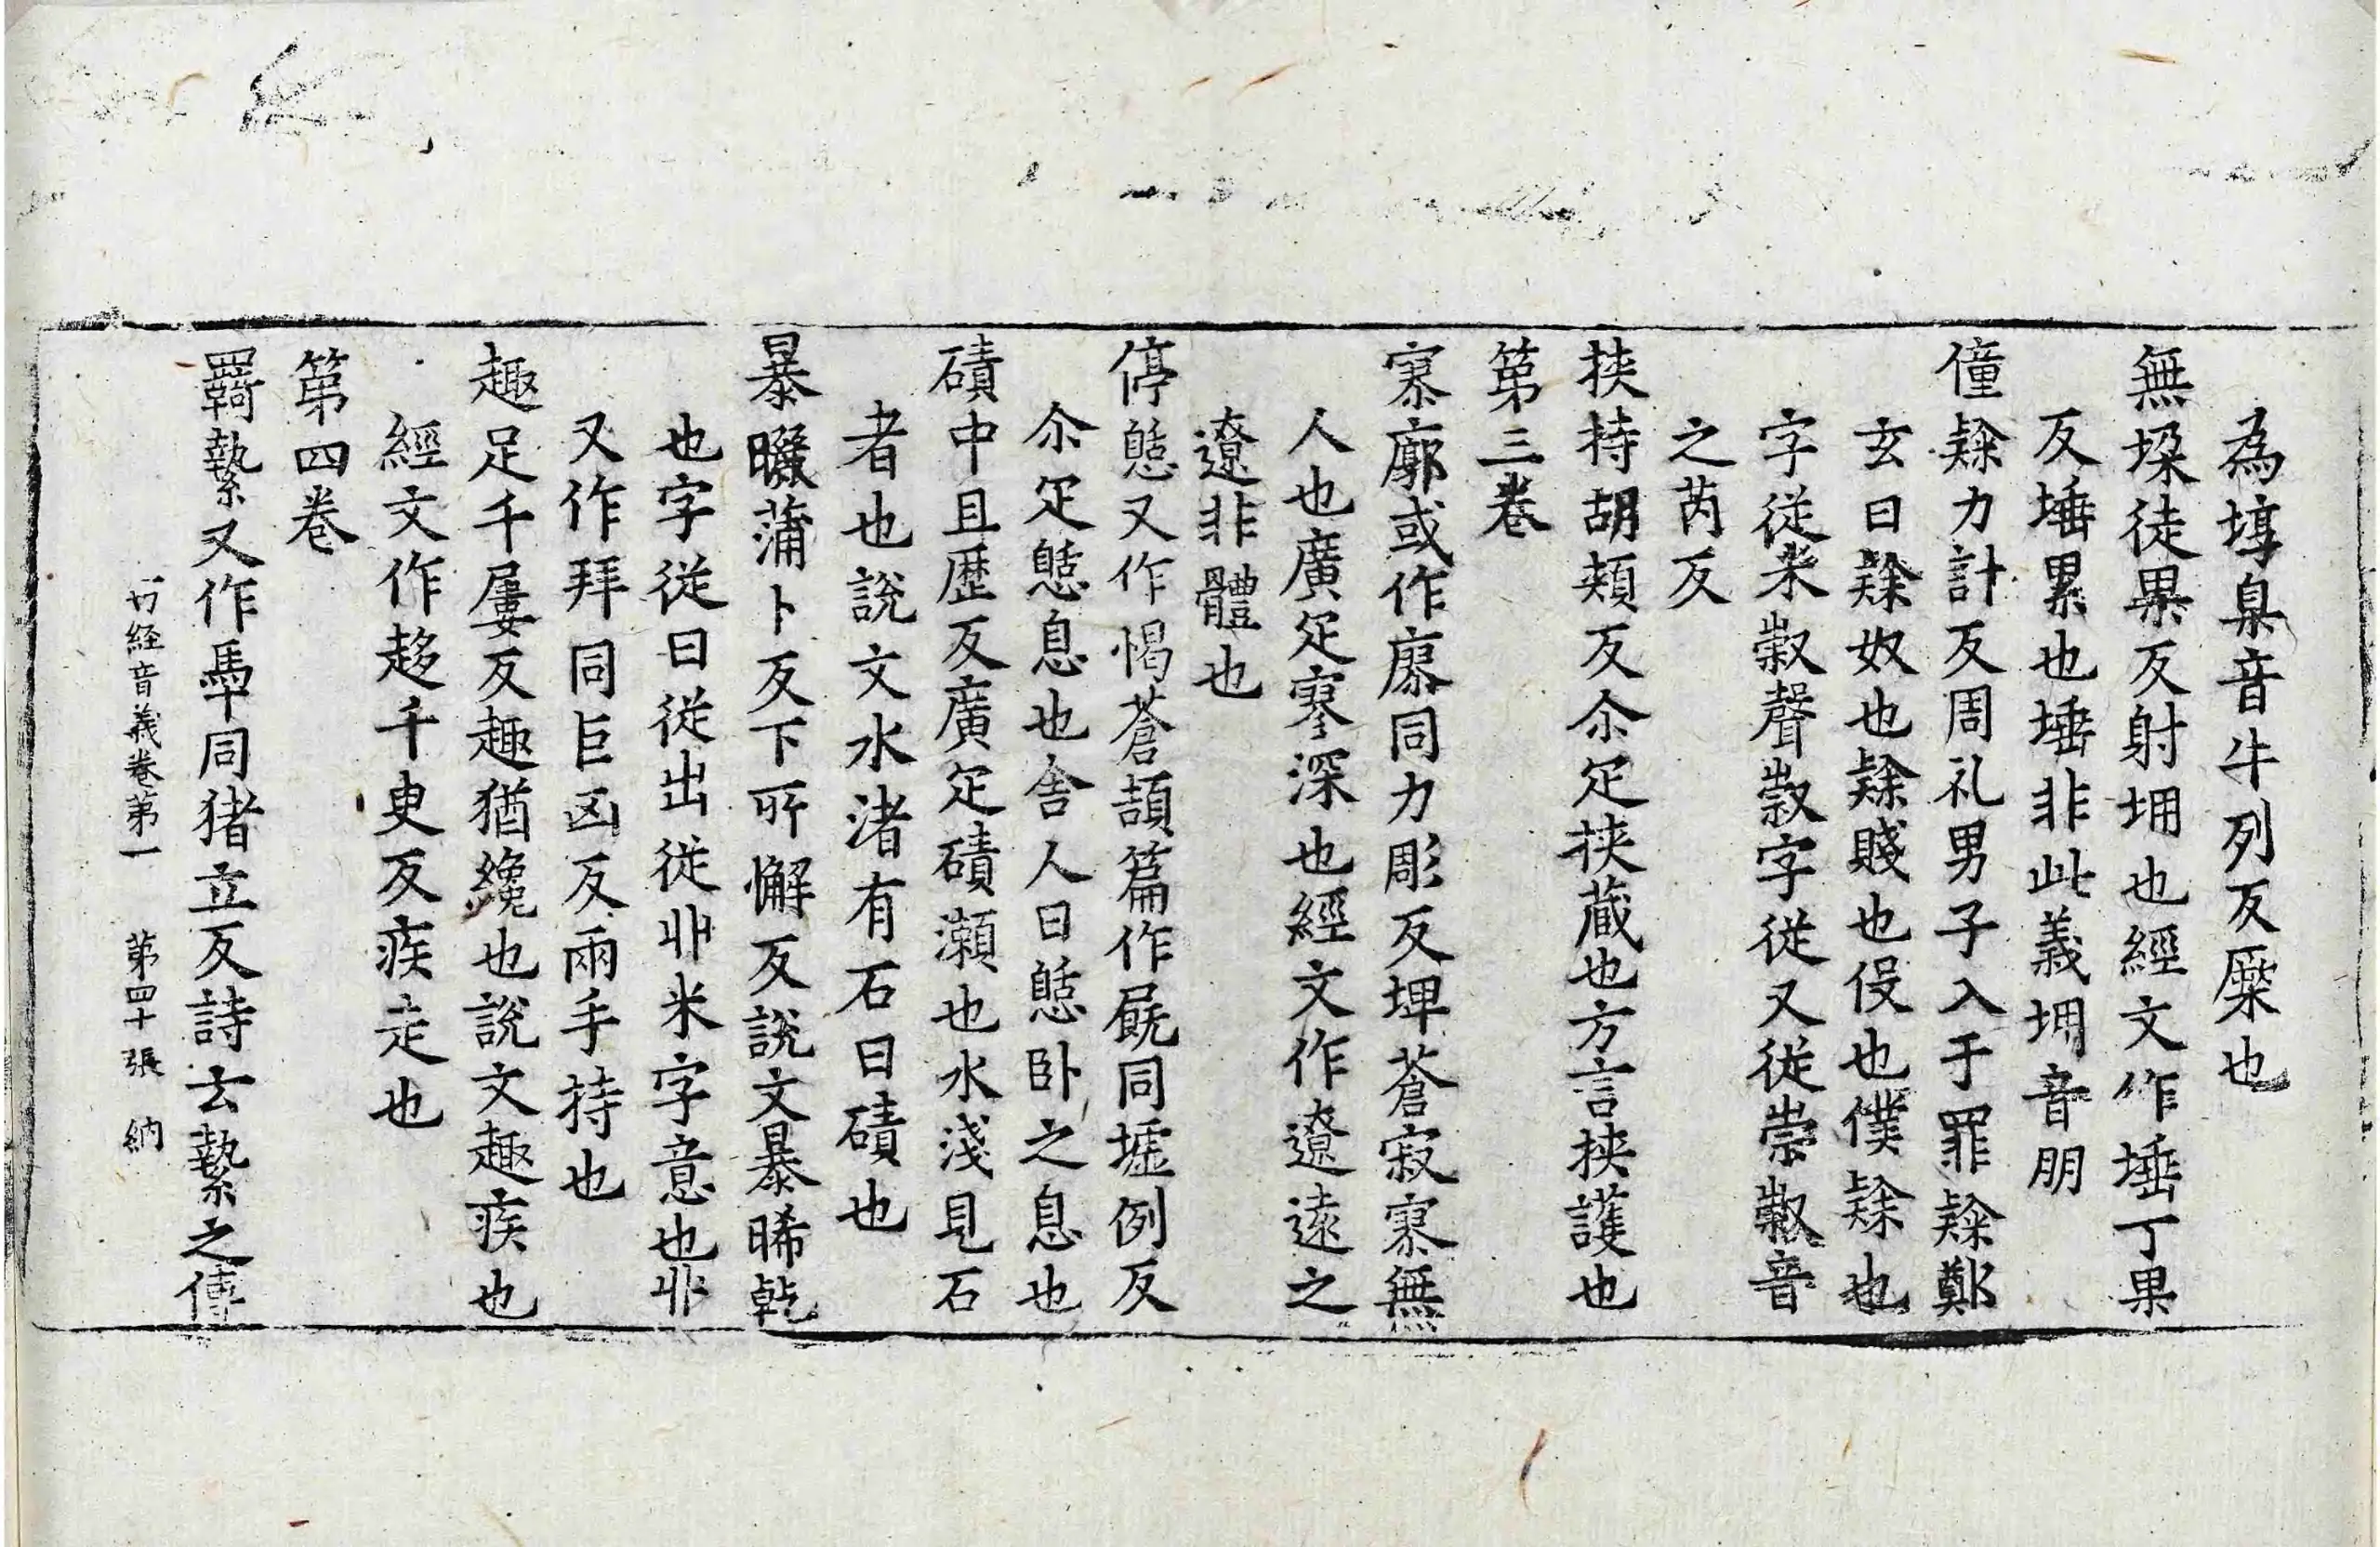 為埻臬音牛列反橜也
無垜徒果反射堋也經文作埵丁果
反埵累也埵非此義堋音朋
僮𨽻力計反周礼男子入于罪𨽻鄭
玄曰𨽻奴也𨽻賤也伇也僕𨽻也
字從米㕢聲㕢字從又從祟㕢音
之芮反
挾持胡頰反尒疋挾蔵也方言挾護也
第三卷
寮廓或作廫同力彫反埤蒼寂寮無
人也廣疋寥深也經文作遼遠之
遼非體也
停憩又作愒蒼頡篇作㞒同墟例反
尒疋憩息也舎人曰憩卧之息也
磧中且歴反廣疋磧瀬也水淺見石
者也說文水渚有石曰磧也
暴曬蒲卜反下所懈反說文暴晞乾
也字從日從出從𠬞米字意也𠬞
又作拜同巨凶反兩手持也
趣足千屢反趣猶纔也說文趣疾也
經文作趍千臾反疾走也
第四卷
羇縶又作馽同猪立反詩云縶之傳
一切経音義卷第一　第四十張　納